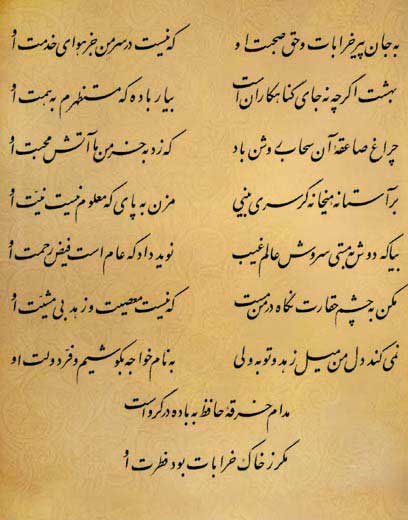 به جان پیر خرابات و حق صحبت او که نیست در سر من جز هوای خدمت او
بهشت اگر چه نه جای گناهکاران است بیار باده که مستظهرم به همت او
چراغ صاعقهٔ آن سحاب روشن باد که زد به خرمن ما آتش محبت او
بر آستانهٔ میخانه گر سری بینی مزن به پای که معلوم نیست نیّت او
بیا که دوش به مستی سروش عالم غیب نوید داد که عام است فیض رحمت او
مکن به چشم حقارت نگاه در من مست که نیست معصیت و زهد بی مشیّت او
نمی کند دل من میل زهد و توبه ولی به نام خواجه بکوشیم و فرّ دولت او
مدام خرقهٔ حافظ به باده در گرو است
مگر ز خاک خرابات بود فطرت او